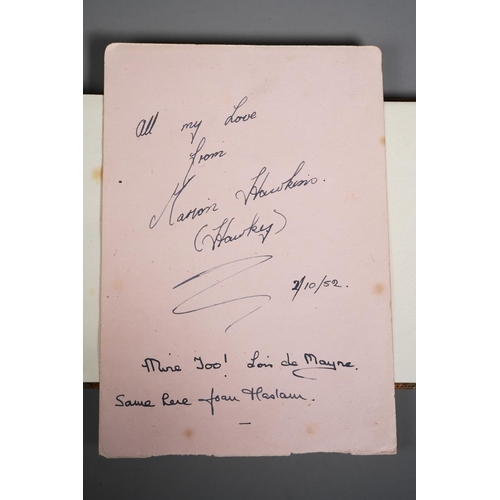 All my Love
from
Marion Hawkins.
(Hawkey)
2/10/52.
Mine Too! Lois de Mayne.
Same here - Joan Haslam.